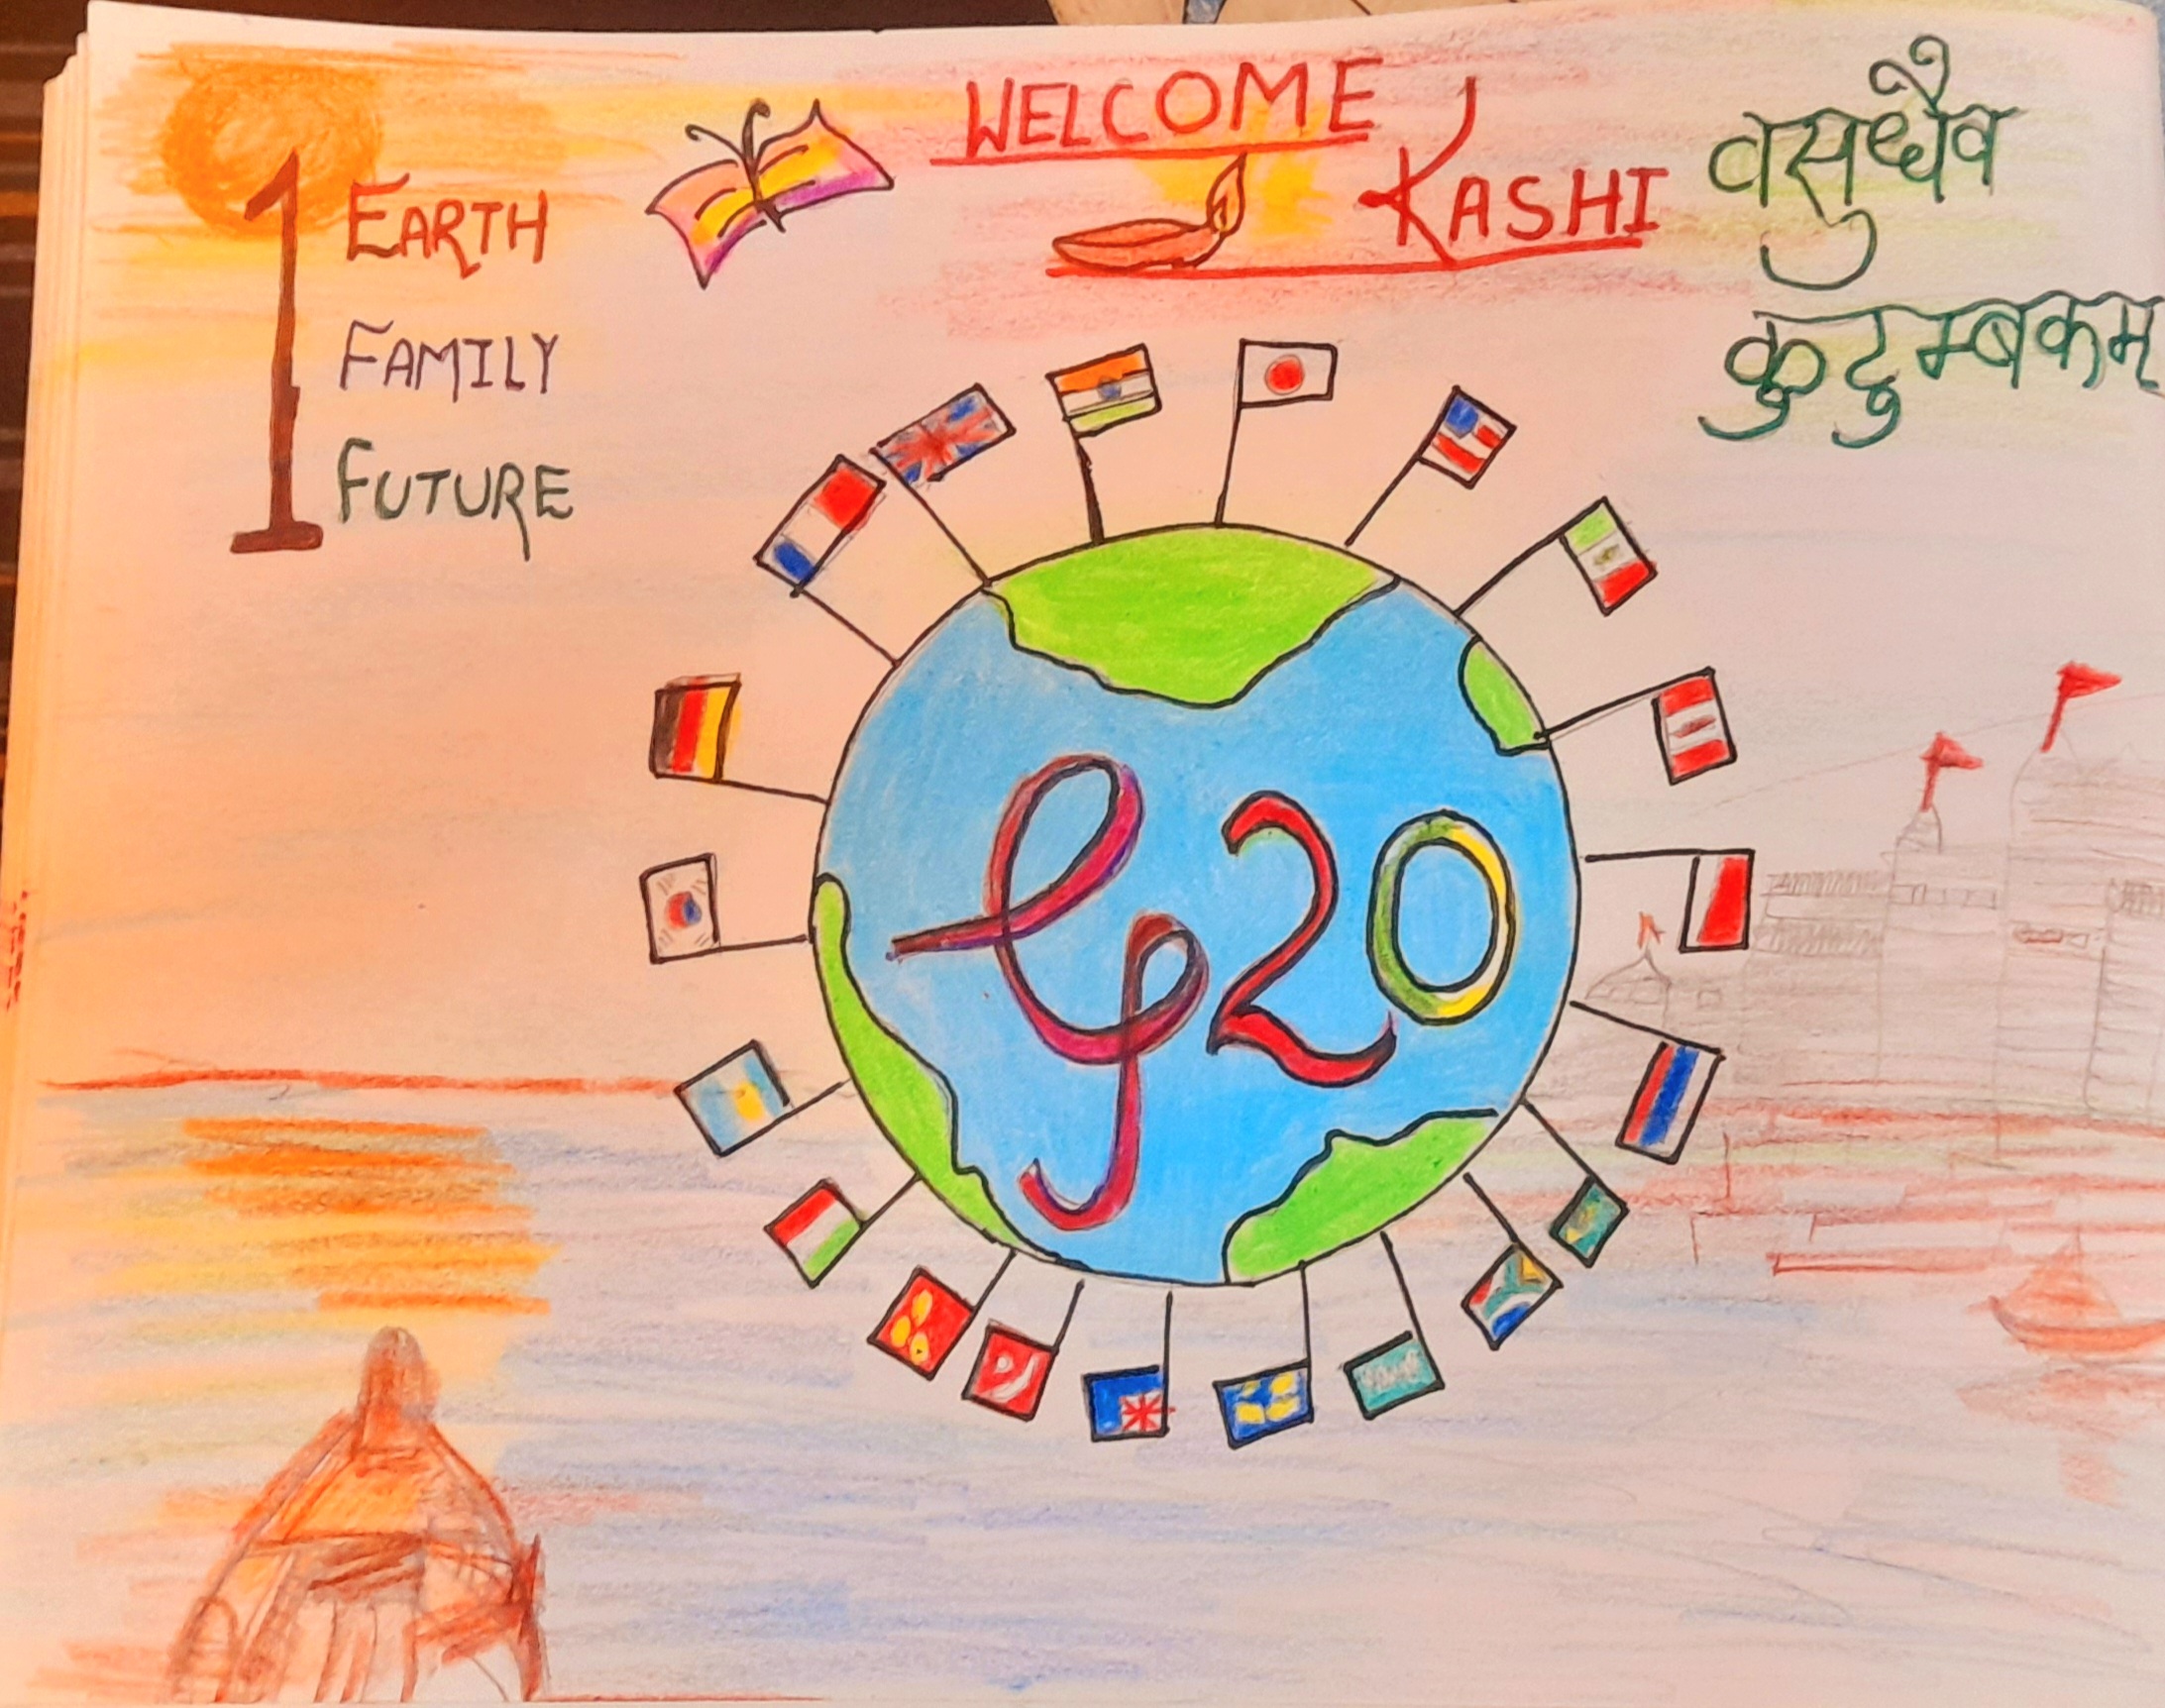 WELCOME
KASHI
1 EARTH
FAMILY
FUTURE
वसुधैव
कुटुम्बकम्
G20